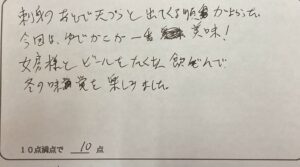 刺身のあとで天ぷらと出てくる順番がよかった。
今回は、ゆでがにが一番美味!
女房様とビールをたくさん飲んで
冬の味覚を楽しみました。
10点満点で 10 点